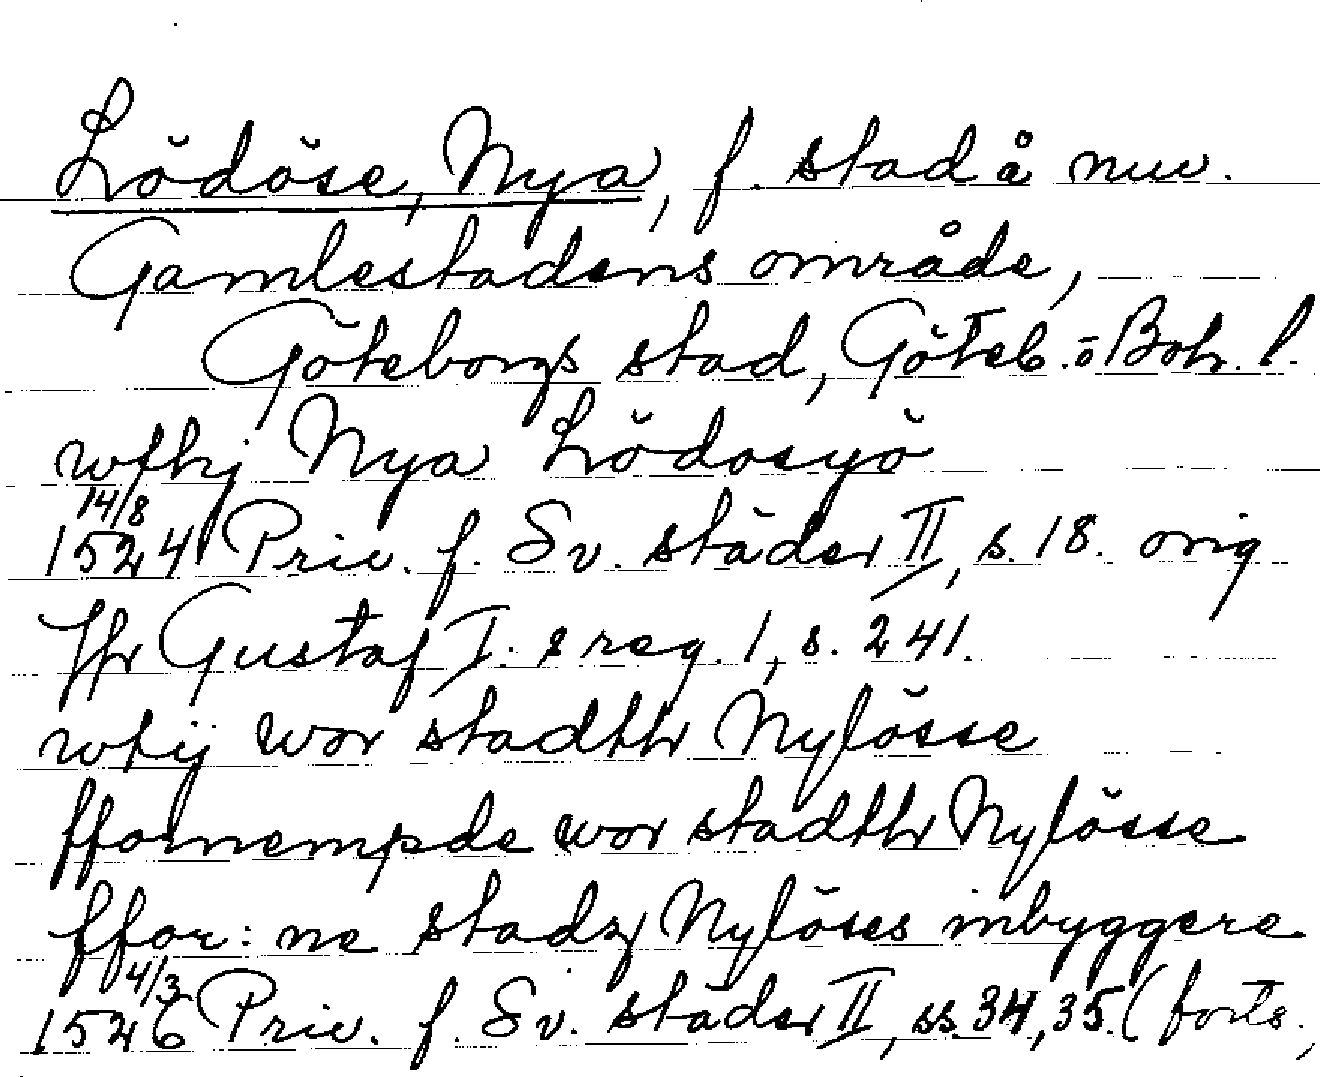 Lödöse, Nya, f. stad å nuv.
Gamlestadens område,
Göteborgs stad, Göteb. o Boh. l.
wthj Nya Lödosyö
14/8
1524 Priv. f. Sv. städer II, s. 18. orig
Jfr Gustaf I. s reg. 1, s. 241.
wtij wor stadthr Nylösse
ffornempde wor stadthr Nylösse
ffor: ne stadz Nylöses inbyggere
4/3
1526 Priv. f. Sv. städer II, ss. 34, 35. (forts.,